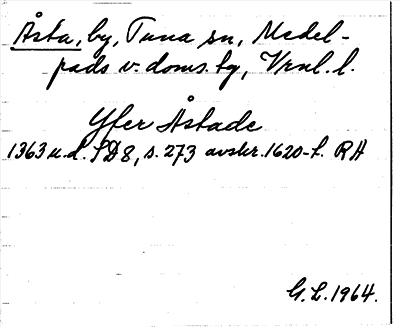 Åsta, by, Tuna sn, Medel-
pads v. doms. tg, Vrnl. l.
Yfer Åstade
1363 u.d. SD 8, s. 273 avskr. 1620-t. RA
G.L. 1964.